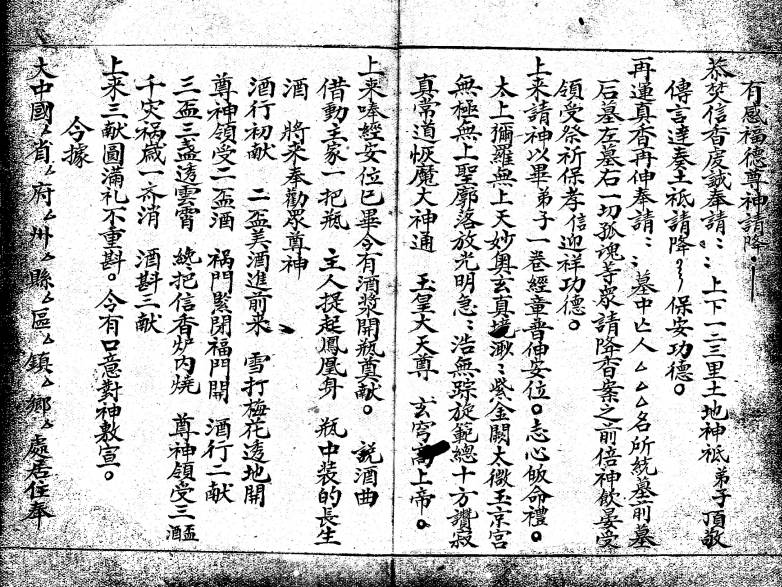 有感福德尊神請降
恭焚信香虔誠奉請 上下一二三里土地神祇 弟子頂敬
傳言達奏土祇請降 保安功德。
再運真香再伸奉請 墓中亡人 厶厶厶名所統墓前墓
后墓左墓右一切孤魂等眾請降香案之前倍神飲宴受
領受祭祈保孝信迎祥功德。
上來請神以畢弟子一卷經童普伸安位。志心皈命禮。
太上彌羅無上天妙奧玄真境渺渺紫金闕太微玉京宮
無極無上聖廓落放光明急急浩無踪旋範總十方讚寂
真常道恢魔大神通 玉皇大天尊 玄穹高上帝。
上來奉經安位已畢今有酒漿開瓶奠献。 説酒曲
借動主家一把瓶 主人提起鳳凰身 瓶中装的長生
酒 將來奉勸眾尊神
酒行初献 二盃美酒進前来 雪打梅花透地開
尊神領受二盃酒 禍門緊閉福門開 酒行二献
三盃三盞透雲霄 繞把信香炉内燒 尊神領受三盃酒
千灾禍䘵一齐消 酒斟三献
上来三献圓滿礼不重斟。今有口意對神敷宣。
今據
大中國厶省厶府厶州厶縣厶區厶鎮厶鄉厶處居住奉